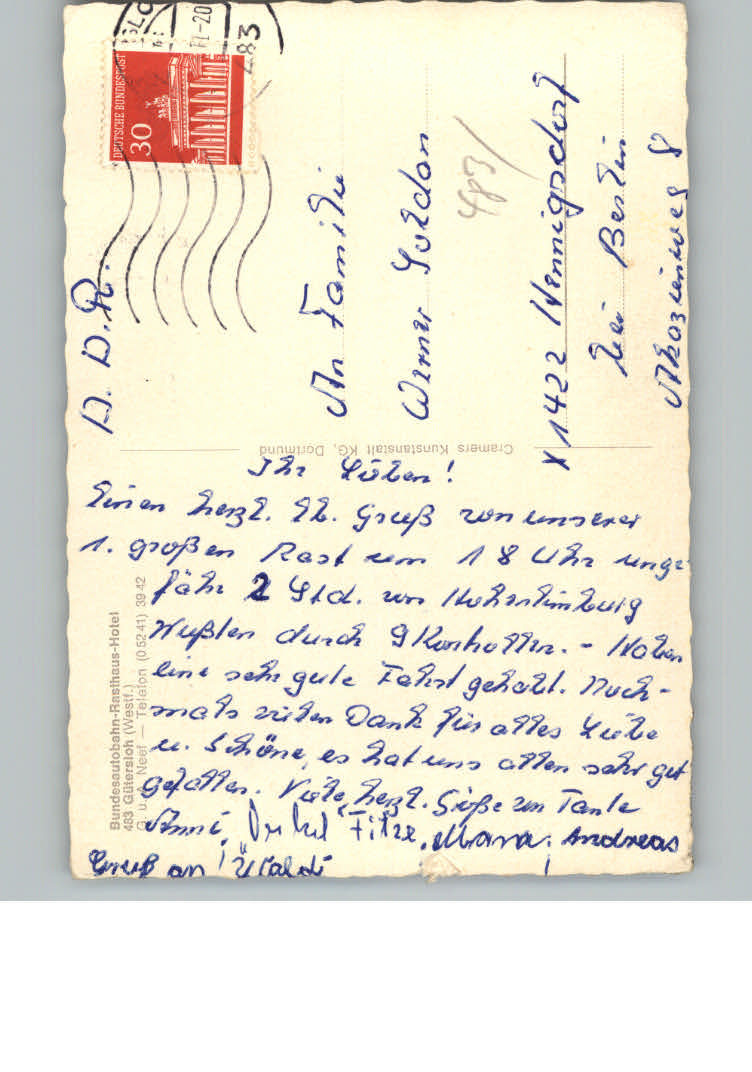 DEUTSCHE BUNDESPOST
30
483
-20
D. D. R.
An Familie
Werner Soldan
483/
X 1422 Hennigsdorf
bei Berlin
Akazienweg 8
Cramers Kunstanstalt KG, Dortmund
Ihr Lieben!
Einen herzl. lb. Gruß von unserer
1. großen Rast um 18 Uhr unge-
fähr 2 Std. von Hohenlimburg
Mußten durch 9 Kontrollen. - Haben
eine sehr gute Fahrt gehabt. Noch-
mals vielen Dank für alles Liebe
u. Schöne, es hat uns allen sehr gut
gefallen. Viele herzl. Grüße von Tante
Änne, Onkel "Fitze, Mona. Andreas
Gruß an "Waldi
Bundesautobahn-Rasthaus-Hotel
483 Gütersloh (Westf.)
G. u. Neef — Telefon (0 52 41) 39 42